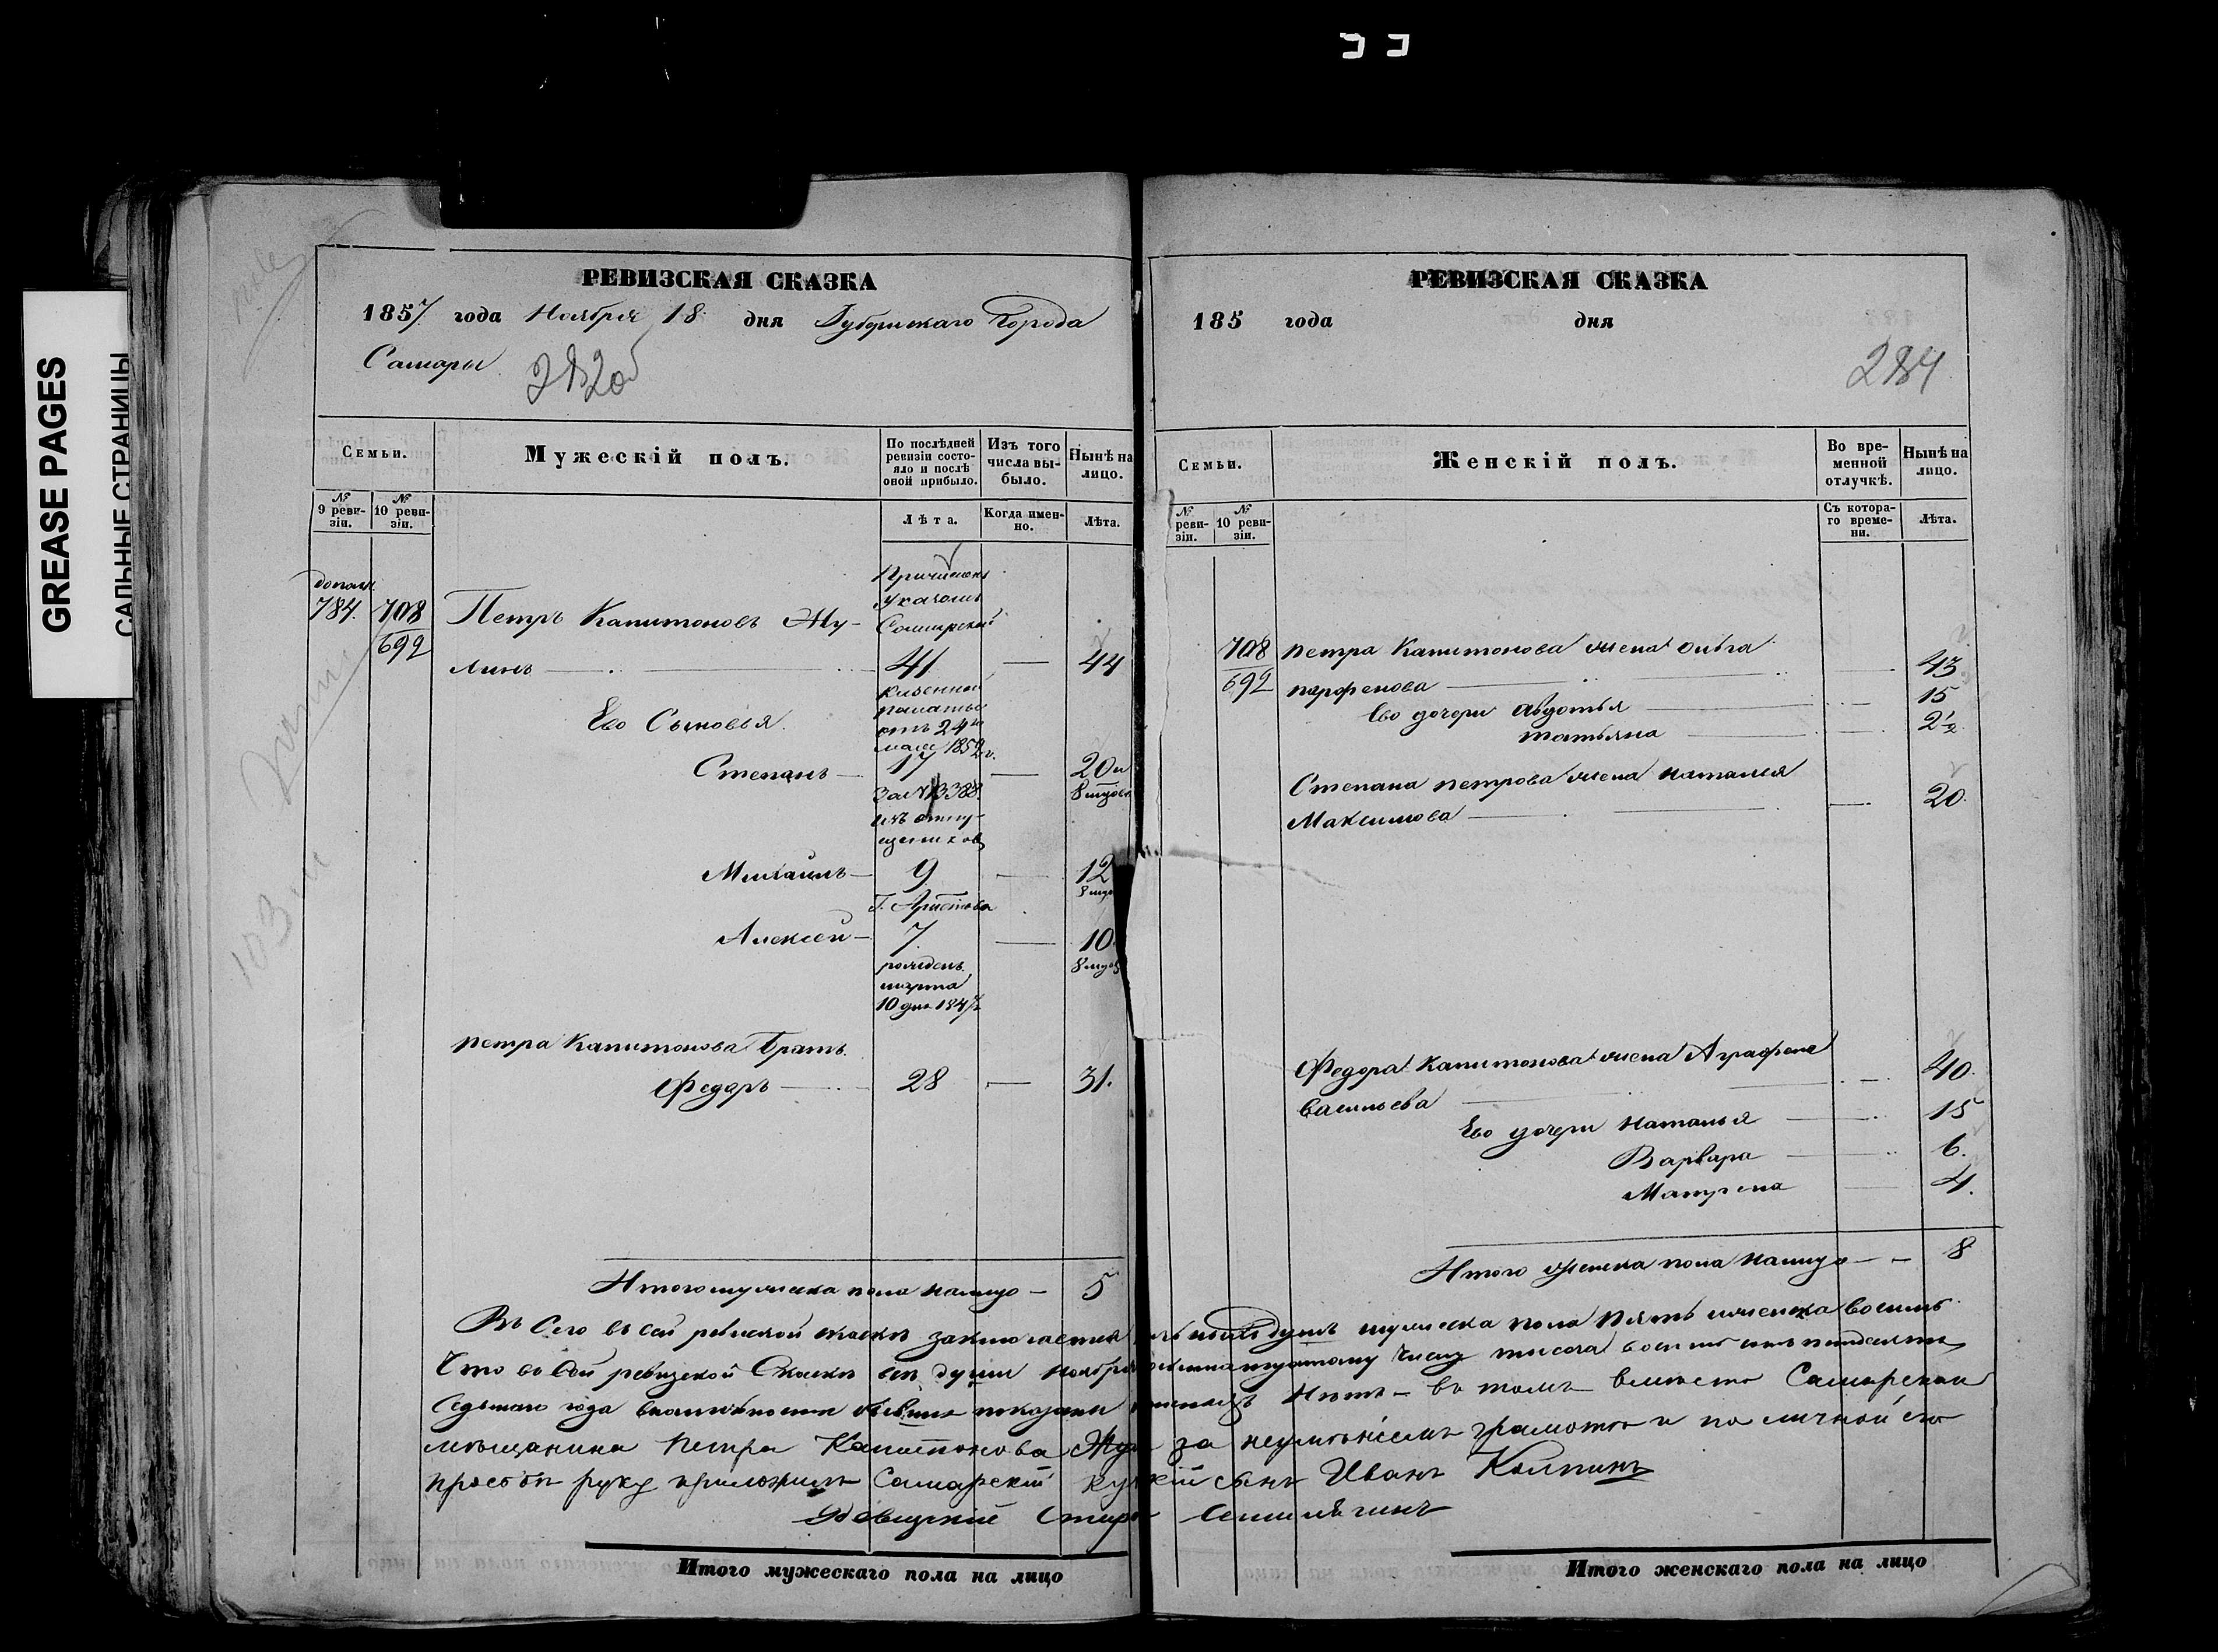 GREASE PAGES
САЛЬНЫЕ СТРАНИЦЫ
РЕВИЗСКАЯ СКАЗКА
1857 года Ноября 18 дня Губернскаго Города
Самары
Семьи.
Мужескій полъ.
По послѣдней ревизіи состояло и послѣ оной прибыло.
Изъ того числа выбыло.
Нынѣ на лицо.
№ 9 ревизіи.
№ 10 ревизіи.
Лѣта.
Когда именно.
Лѣта.
допол.
784. 708
692
Петръ Капитоновъ Жу-
линъ 41 — 44
Причисленъ
указомъ
Самарской
казенной
палаты
отъ 24
мая 1852 г.
Ево Сыновья
Степанъ — 17 — 20 и
8 мцовъ
За № 3388
изъ отпу-
щеников
Михаилъ — 9 — 12
Алексей — 7 — 10
8 мцовъ
рожденъ
марта
10 дня 1847
Петра Капитонова Братъ
Федоръ — 28 — 31.
Итого мужеска пола налицо — 5
РЕВИЗСКАЯ СКАЗКА
185 года дня
284
Семьи.
Женскій полъ.
Во временной отлучкѣ.
Нынѣ на лицо.
№ ревизіи.
№ 10 ревизіи.
Съ котораго времени.
Лѣта.
708 Петра Капитонова жена Ольга
692 парфенова — 43
Ево дочери Авдотья — 15
татьяна — 2½
Степана петрова жена наталья
Максимова — 20
Федора Капитонова жена Аграфена
Васильева 40
Ево дочери Наталья — 15
Варвара — 6.
Матрена 4.
Итого женска пола налицо — 8
Въ Сего въ сей ревиской скаски заключается душъ мужеска пола пять женска восимь
Что въ Сей ревизской Скаски все души Ноября числу тысеча восимь сотъ пятдесятъ
Седьмаго года показаны Нетъ — въ томъ вместо Самарскаго
мѣщанина Петра Капитонова за неумѣніемъ грамоте и по личной ево
просьбе руку приложилъ Самарскій сынъ Иванъ Колпинъ
Итого мужескаго пола на лицо
Итого женскаго пола на лицо